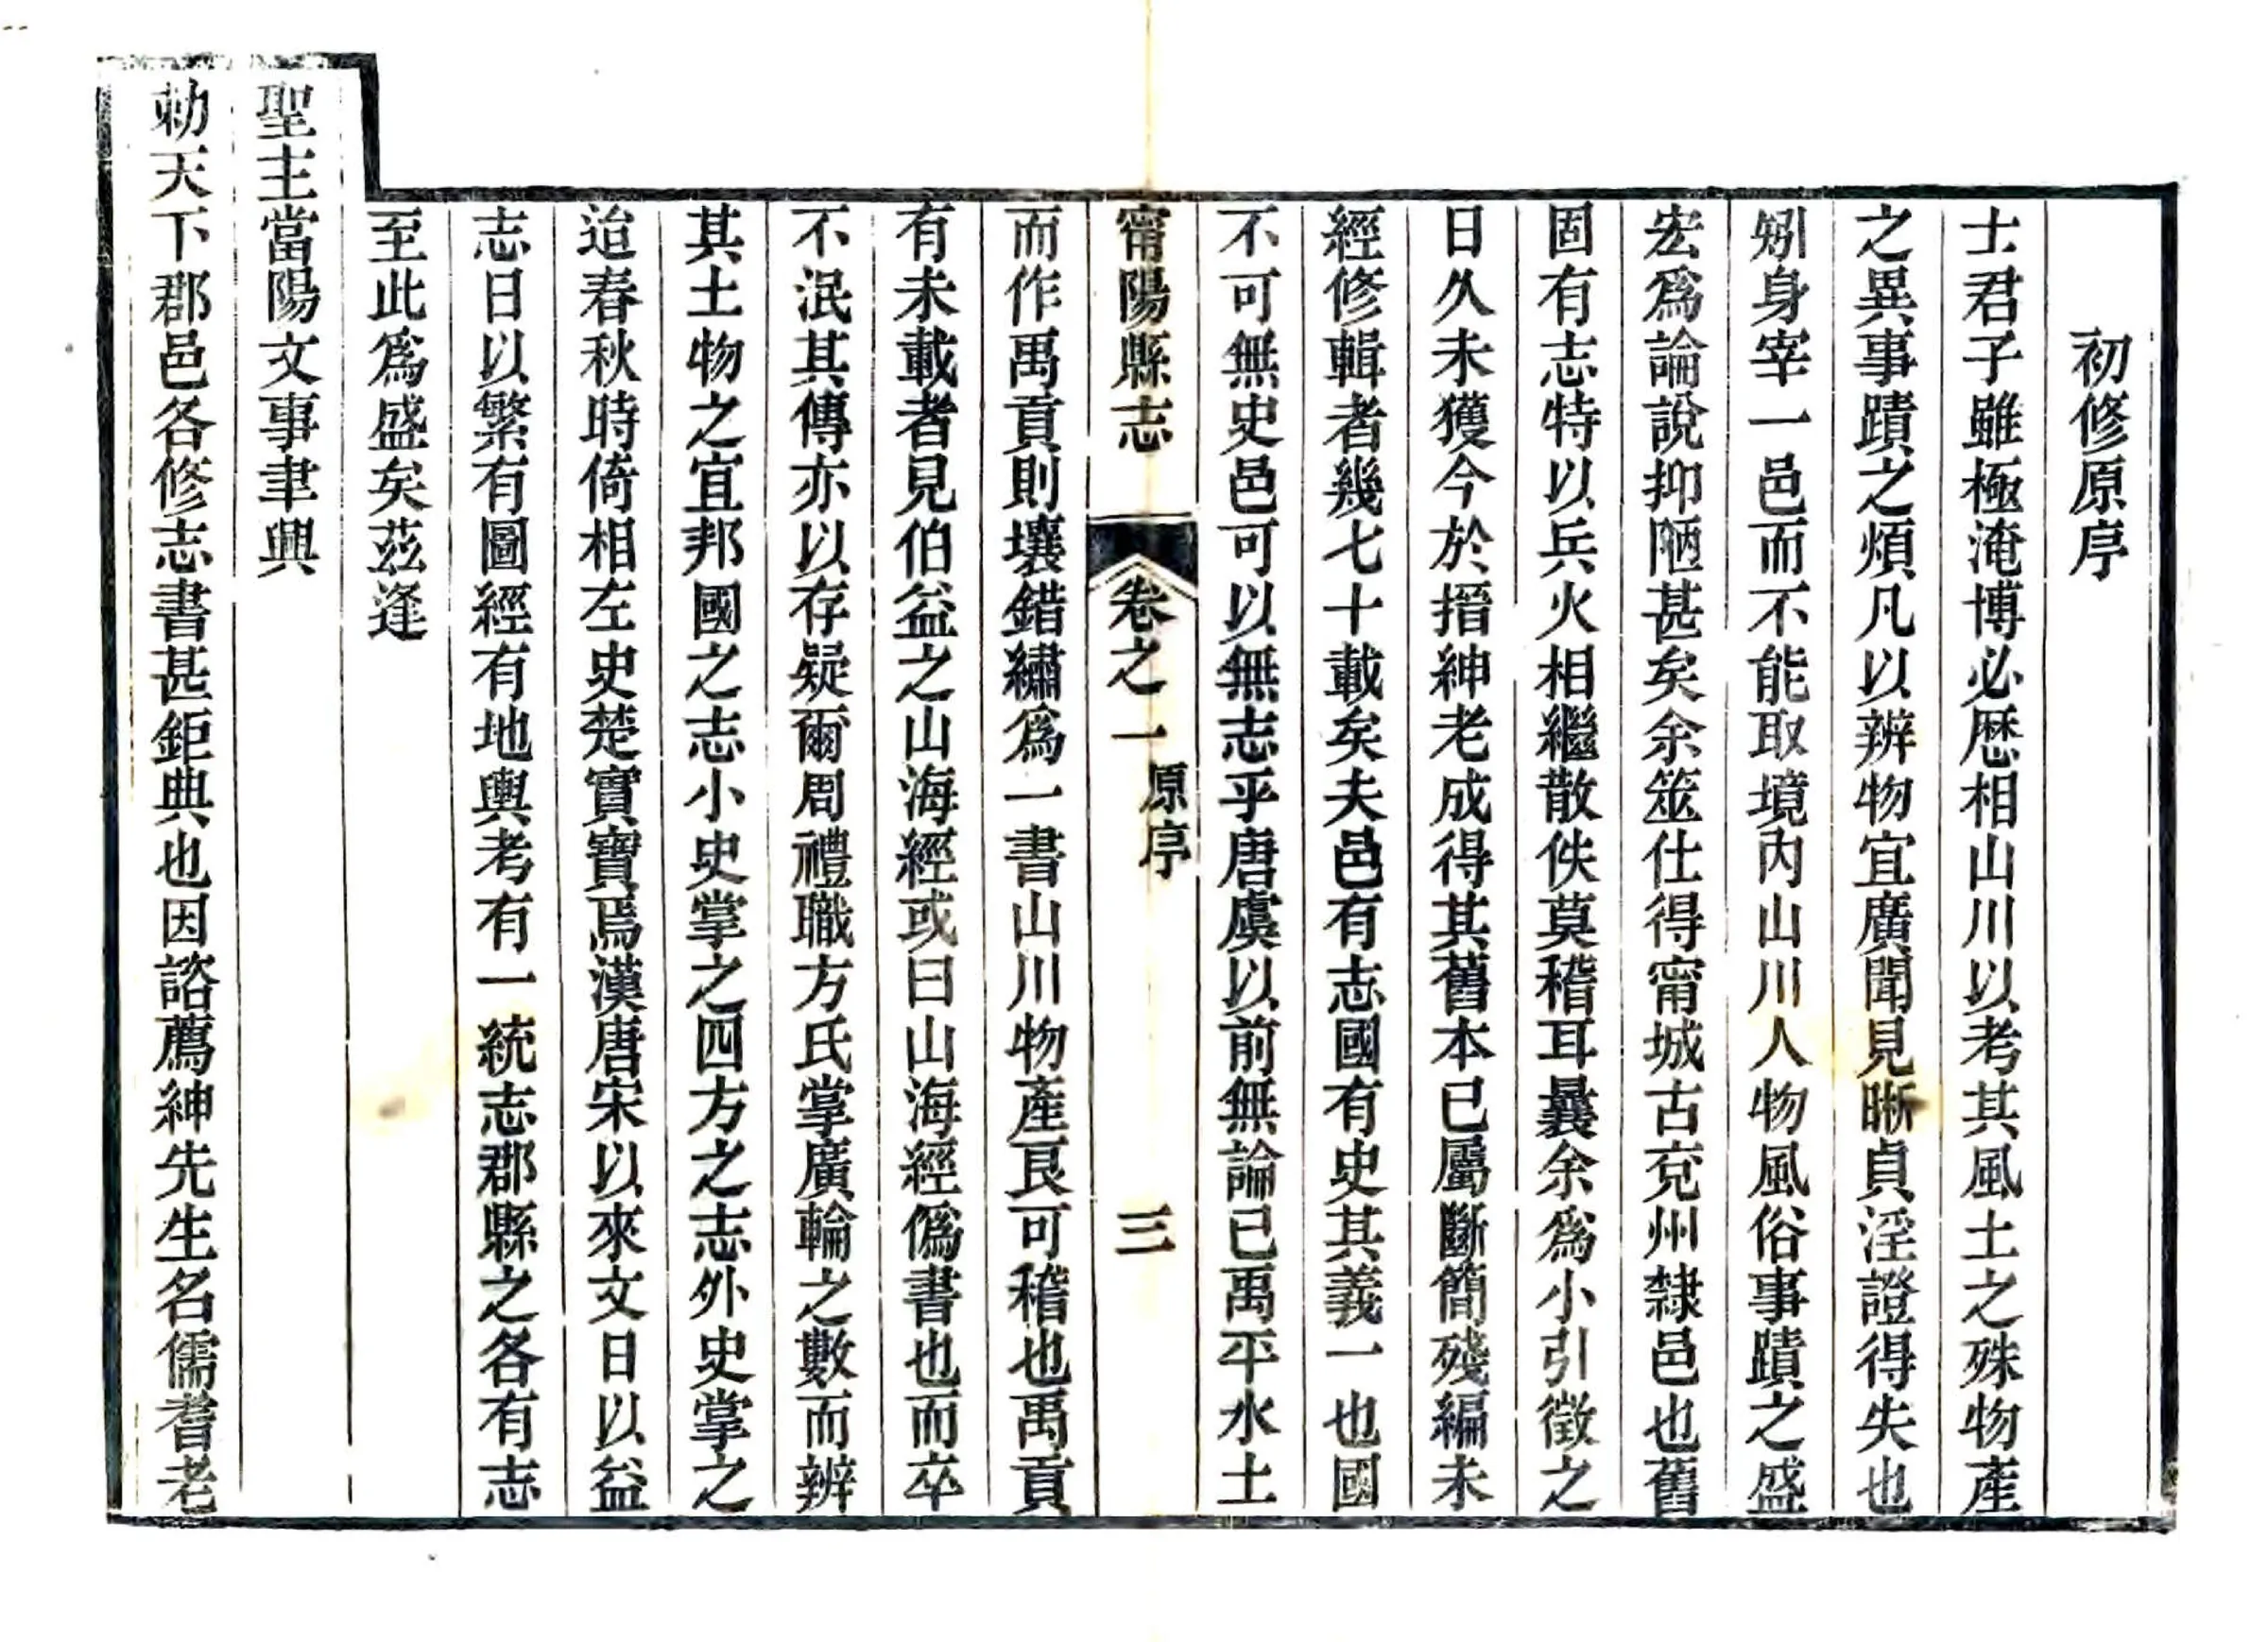 初修原序
士君子雖極淹博必歷相山川以考其風土之殊物產
之異事蹟之煩凡以辨物宜廣聞見晰貞淫證得失也
矧身宰一邑而不能取境內山川人物風俗事蹟之盛
宏爲論說抑陋甚矣余筮仕得甯城古兗州隸邑也舊
固有志特以兵火相繼散佚莫稽耳曩余爲小引徵之
日久未獲今於搢紳老成得其舊本已屬斷簡殘編未
經修輯者幾七十載矣夫邑有志國有史其義一也國
不可無史邑可以無志乎唐虞以前無論已禹平水土
甯陽縣志 卷之一 原序 三
而作禹貢則壤錯繡爲一書山川物產艮可稽也禹貢
有未載者見伯益之山海經或曰山海經僞書也而卒
不泯其傳亦以存疑爾周禮職方氏掌廣輪之數而辨
其土物之宜邦國之志小史掌之四方之志外史掌之
迨春秋時倚相左史楚實寶焉漢唐宋以來文日以益
志日以繁有圖經有地輿考有一統志郡縣之各有志
至此爲盛矣茲逢
聖主當陽文事聿興
勅天下郡邑各修志書甚鉅典也因諮薦紳先生名儒耆老